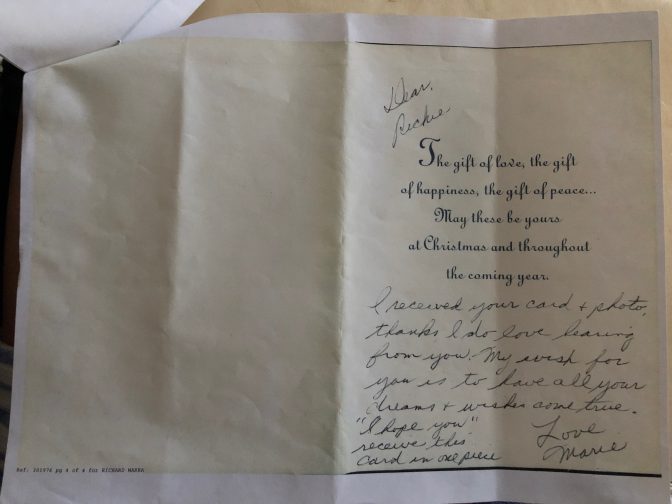 Dear.
Richie
The gift of love, the gift
of happiness, the gift of peace...
May these be yours
at Christmas and throughout
the coming year.
I received your card + photo,
thanks I do love hearing
from you. My wish for
you is to have all your
dreams + wishes come true.
"I hope you"
receive this
card in one piece
Love
Marie
Ref: 101976 pg 4 of 4 for RICHARD MARRA